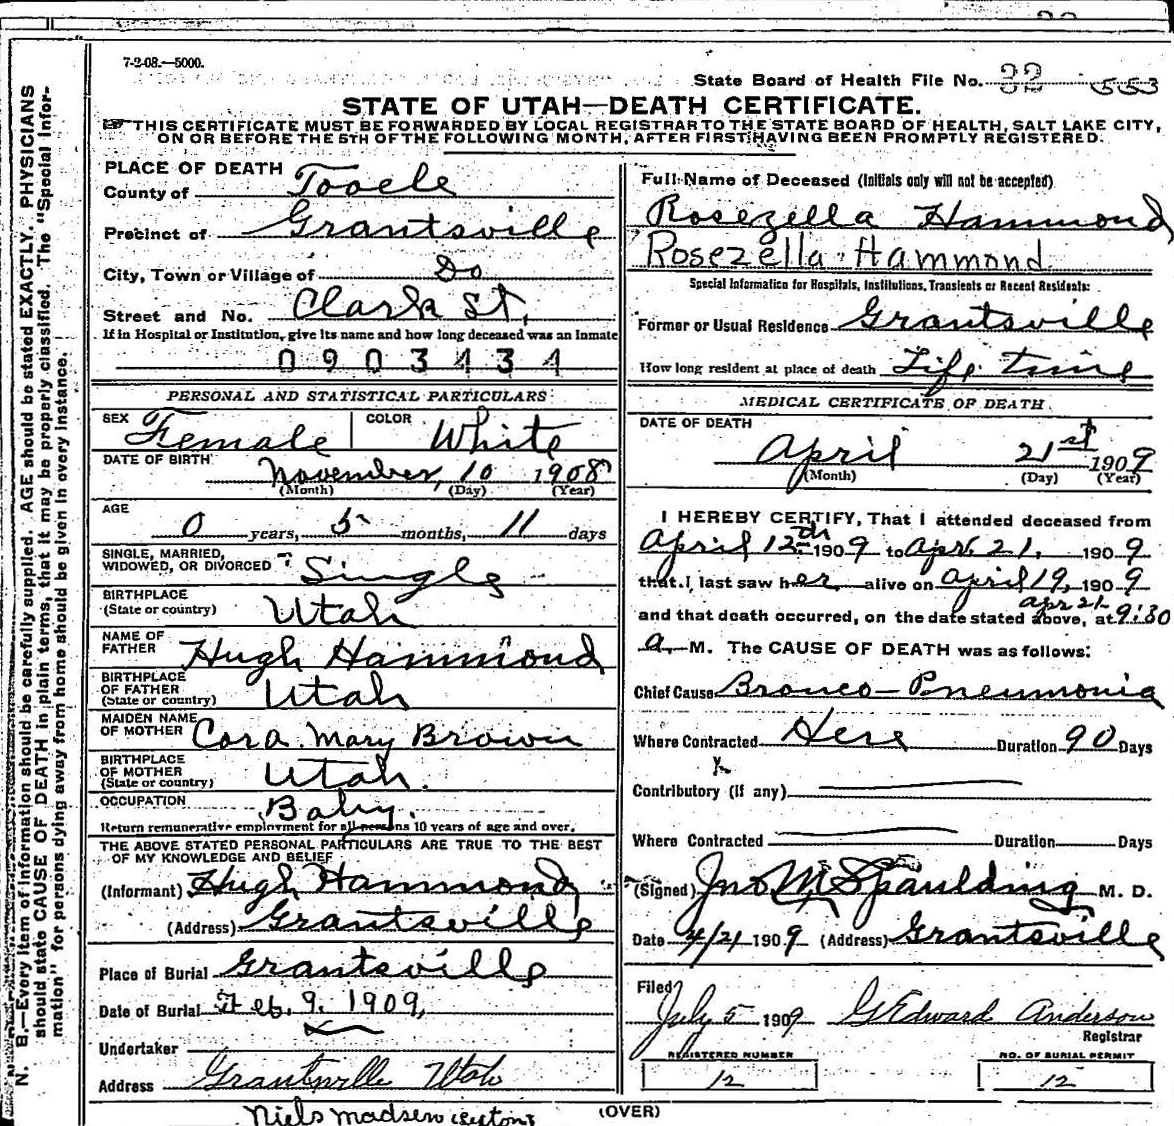 7-2-08.—5000.
State Board of Health File No. 22 553
STATE OF UTAH—DEATH CERTIFICATE.
THIS CERTIFICATE MUST BE FORWARDED BY LOCAL REGISTRAR TO THE STATE BOARD OF HEALTH, SALT LAKE CITY,
ON OR BEFORE THE 5TH OF THE FOLLOWING MONTH, AFTER FIRST HAVING BEEN PROMPTLY REGISTERED.
N. B.—Every item of information should be carefully supplied. AGE should be stated EXACTLY. PHYSICIANS
should state CAUSE OF DEATH in plain terms, that it may be properly classified. The "Special Infor-
mation" for persons dying away from home should be given in every instance.
PLACE OF DEATH
County of Tooele
Precinct of Grantsville
City, Town or Village of Do
Street and No. Clark St.
If in Hospital or Institution, give its name and how long deceased was an inmate
0903434
PERSONAL AND STATISTICAL PARTICULARS
SEX Female COLOR White
DATE OF BIRTH November, 10 1908
(Month) (Day) (Year)
AGE
0 years, 5 months, 11 days
SINGLE, MARRIED,
WIDOWED, OR DIVORCED Single
BIRTHPLACE
(State or country) Utah
NAME OF
FATHER Hugh Hammond
BIRTHPLACE
OF FATHER
(State or country) Utah
MAIDEN NAME
OF MOTHER Cora Mary Brown
BIRTHPLACE
OF MOTHER
(State or country) Utah.
OCCUPATION Baby.
Return remunerative employment for all persons 10 years of age and over.
THE ABOVE STATED PERSONAL PARTICULARS ARE TRUE TO THE BEST
OF MY KNOWLEDGE AND BELIEF
(Informant) Hugh Hammond
(Address) Grantsville
Place of Burial Grantsville
Date of Burial Feb. 9. 1909,
Undertaker
Address Grantsville Utah
Niels Madsen (Sexton)
Full Name of Deceased (Initials only will not be accepted)
Rosezella Hammond
Rosezella Hammond
Special Information for Hospitals, Institutions, Transients or Recent Residents:
Former or Usual Residence Grantsville
How long resident at place of death Life time
MEDICAL CERTIFICATE OF DEATH
DATE OF DEATH
April 21st 1909
(Month) (Day) (Year)
I HEREBY CERTIFY, That I attended deceased from
April 12th 1909 to Apr. 21. 1909
that I last saw her alive on April 19, 1909
apr 21-
and that death occurred, on the date stated above, at 9:30
a. M. The CAUSE OF DEATH was as follows:
Chief Cause Bronco-Pneumonia
Where Contracted Here Duration 90 Days
Contributory (if any)
Where Contracted Duration Days
(Signed) Jno M Spaulding M. D.
Date 4/21 1909 (Address) Grantsville
Filed
July 5 1909 G Edward Anderson
Registrar
REGISTERED NUMBER
12
NO. OF BURIAL PERMIT
12
(OVER)